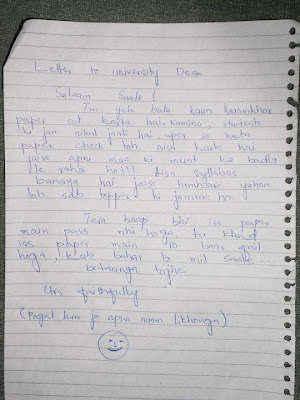 Letter to university Dean
Salaam Saale!
Tm yeh bata kaun haramkhor
paper set karta hai. Kamino, students
ki jan nikal jaati hai, uper se kutta
paper check toh aisa karta hai
jaise apni maa ki mout ka badla
le raha ho!!! Aisa syllabus
banaya hai jaise tumhare yahan
toh sab topper hi janme ho.
Tera baap bhi iss paper
main pass nhi hoga, tu khud
iss paper main 10 bar fail
hoga, kab bahar to mil saale
bataunga tujhe
Urs faithfully
(Pagal hun jo apna naam likhunga)